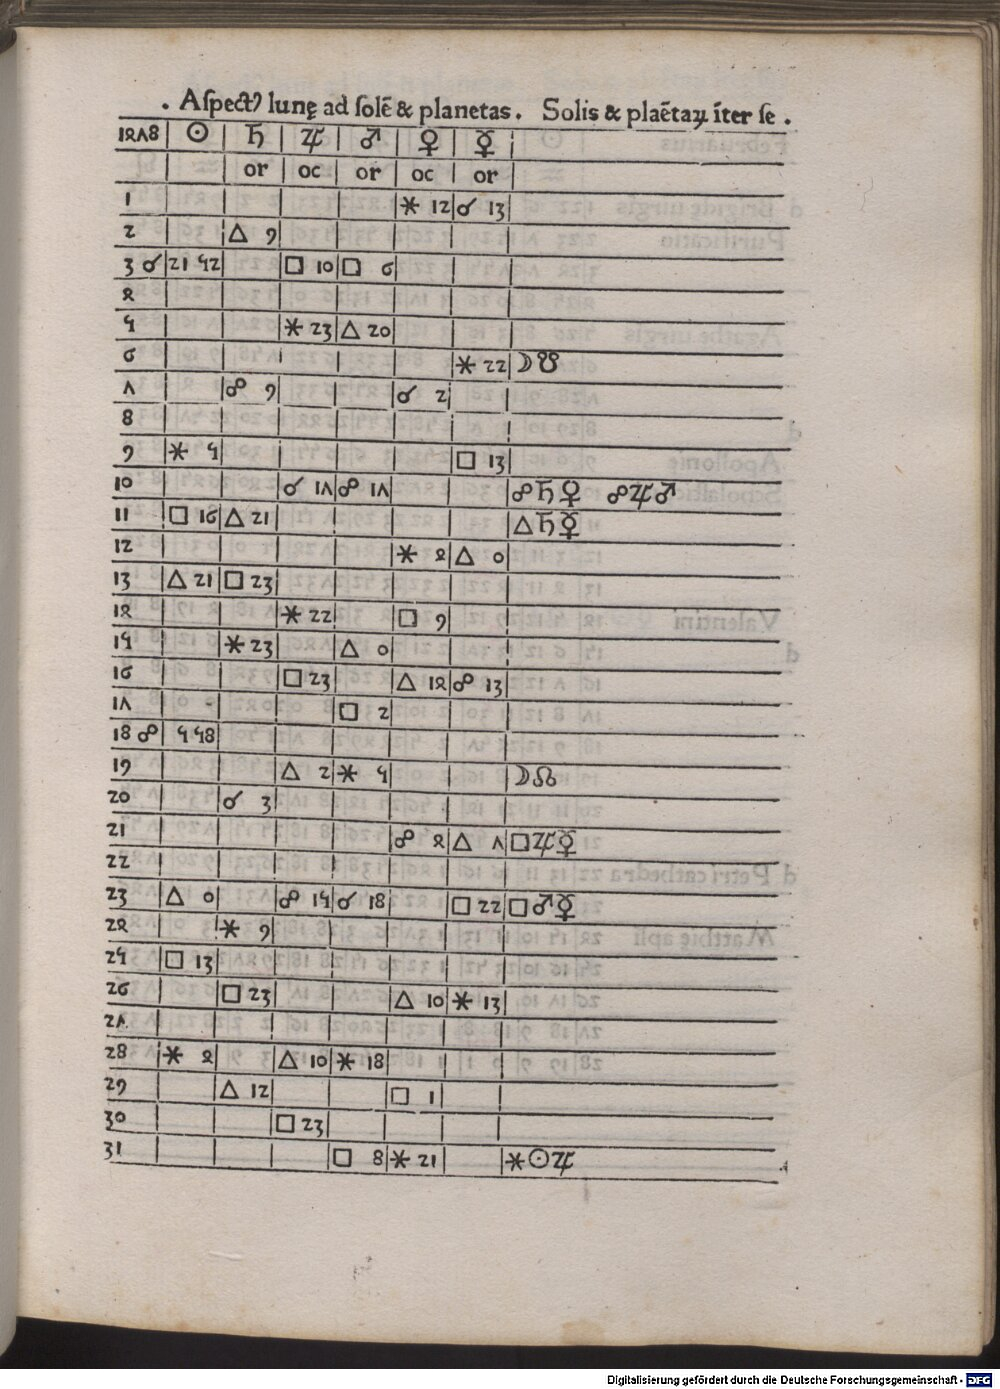 . Aſpectꝰ lunę ad ſolē & planetas . Solis & plaētaꝝ īter ſe .
1478 ☉ ♄ ♃ ♂ ♀ ☿
or oc or oc or
1 ⚹ 12 ☌ 13
2 △ 9
3 ☌ 21 52 □ 10 □ 6
4
5 ⚹ 23 △ 20
6 ⚹ 22 ☽ ☋
7 ☍ 9 ☌ 2
8
9 ⚹ 5 □ 13
10 ☌ 17 ☍ 17 ☍ ♄ ♀ ☍ ♃ ♂
11 □ 16 △ 21 △ ♄ ☿
12 ⚹ 4 △ 0
13 △ 21 □ 23
14 ⚹ 22 □ 9
15 ⚹ 23 △ 0
16 □ 23 △ 14 ☍ 13
17 □ 2
18 ☍ 5 58
19 △ 2 ⚹ 5 ☽ ☊
20 ☌ 3
21 ☍ 4 △ 7 □ ♃ ☿
22
23 △ 0 ☍ 15 ☌ 18 □ 22 □ ♂ ☿
24 ⚹ 9
25 □ 13
26 □ 23 △ 10 ⚹ 13
27
28 ⚹ 4 △ 10 ⚹ 18
29 △ 12 □ 1
30 □ 23
31 □ 8 ⚹ 21 ⚹ ☉ ♃
Digitalisierung gefördert durch die Deutsche Forschungsgemeinschaft - DFG